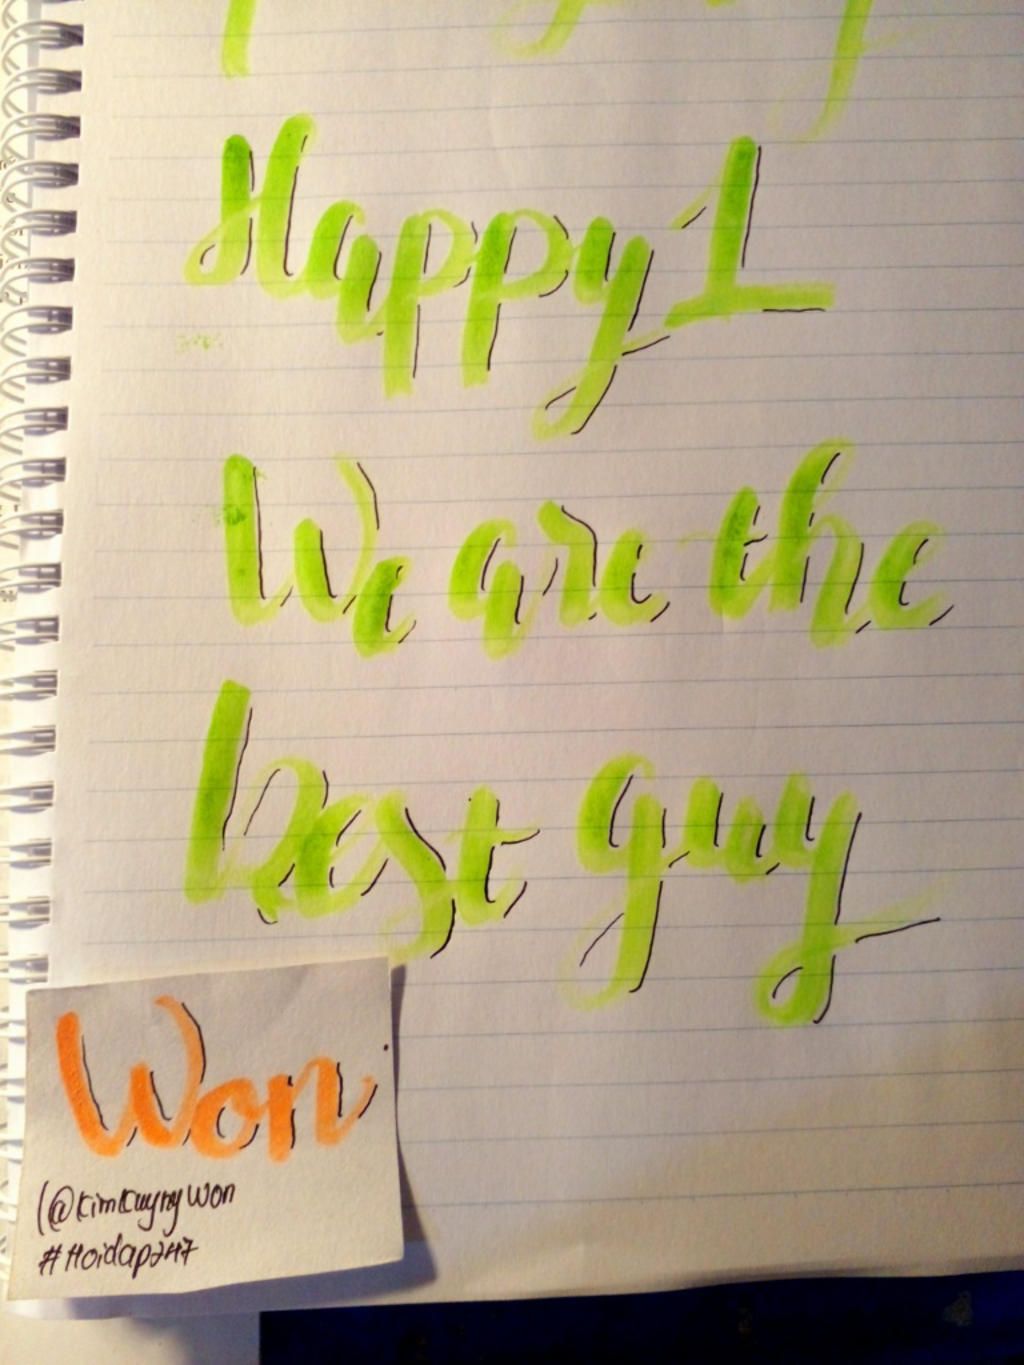 Happy 1
We are the
best guy
Won
(@KimKuyngWon
#Hoidap247